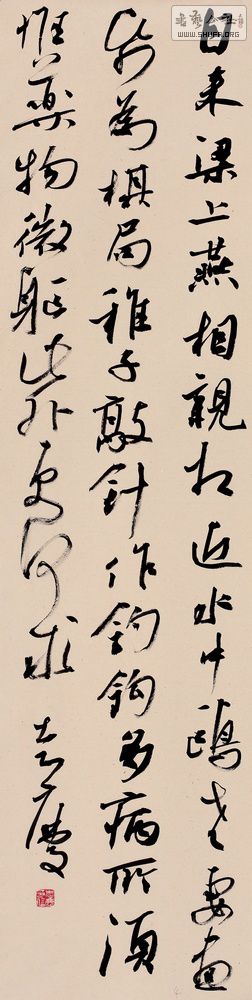 自来梁上燕相親相近水中鷗老妻畫
紙為棋局稚子敲針作釣鈎多病所須
惟藥物微軀此外更何求